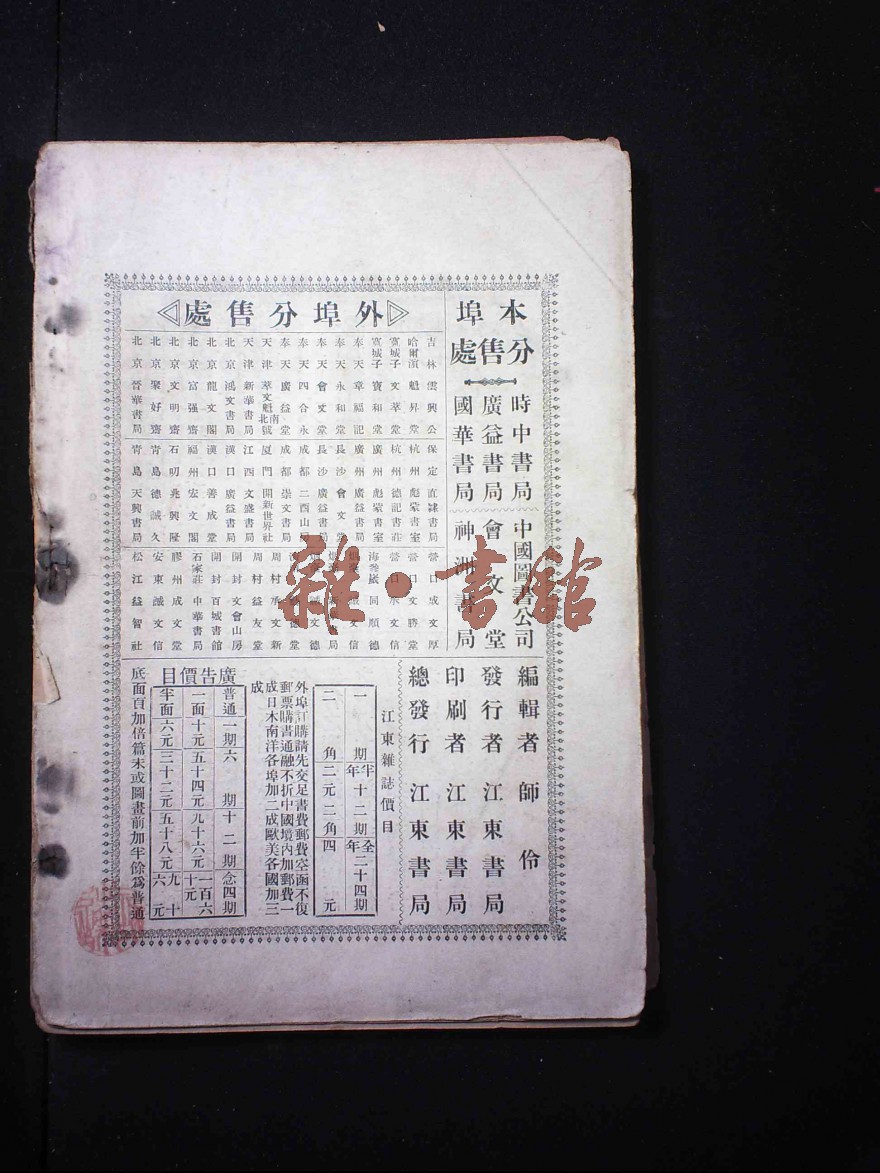 本埠
分售處
時中書局
廣益書局
國華書局
中國圖書公司
會文堂
神洲書局
外埠分售處
吉林雲興公
哈爾濱魁昇堂
寬城子文萃堂
寬城子寶和堂
奉天章福記
奉天永和堂
奉天會文堂
奉天四合永
奉天廣益堂
天津萃文魁南北號
天津新華書局
北京鴻文書局
北京龍文閣
北京富强齋
北京文明齋
北京聚好齋
北京晉華書局
保定直隸書局
杭州彪蒙書室
杭州德記書莊
廣州彪蒙書室
廣州廣益書局
長沙會文堂
長沙廣益書局
成都二酉山房
成都崇文書局
廈門開新世界社
江西文盛書局
漢口廣益書局
漢口善成堂
福州宏文閣
石叨兆興隆
青島德誠久
青島天興書局
營口成文厚
營口文勝堂
營口承文信
海參崴同順德
誠文信
書局
誠文德
德堂
周村承文新
周村益友堂
開封文會山房
開封百城書館
石家莊中華書局
膠州成文堂
安東誠文信
松江益智社
編輯者 師伶
發行者 江東書局
印刷者 江東書局
總發行 江東書局
江東雜誌價目
一期 半年十二期 全年二十四期
二角 二元二角 四元
外埠訂購請先交足書費郵費空函不復
郵票購書通融不折中國境內加郵費一
成日木南洋各埠加二成歐美各國加三
成
廣告價目
普通 一期 六期 十二期 念四期
一面 十元 五十四元 九十六元 一百六十元
半面 六元 三十二元 五十八元 九十六元
底面頁加倍篇末或圖畫前加半餘爲普通
雜·書館